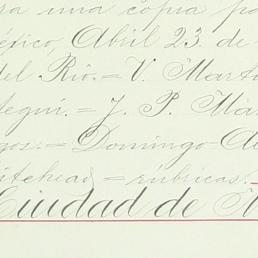 ra una copia pa
éxico, Abril 23. de
del Rio. = V. Martí
tegui. = J. P. Mar
gos. = Domingo A
itehead = rúbricas.
Ciudad de M